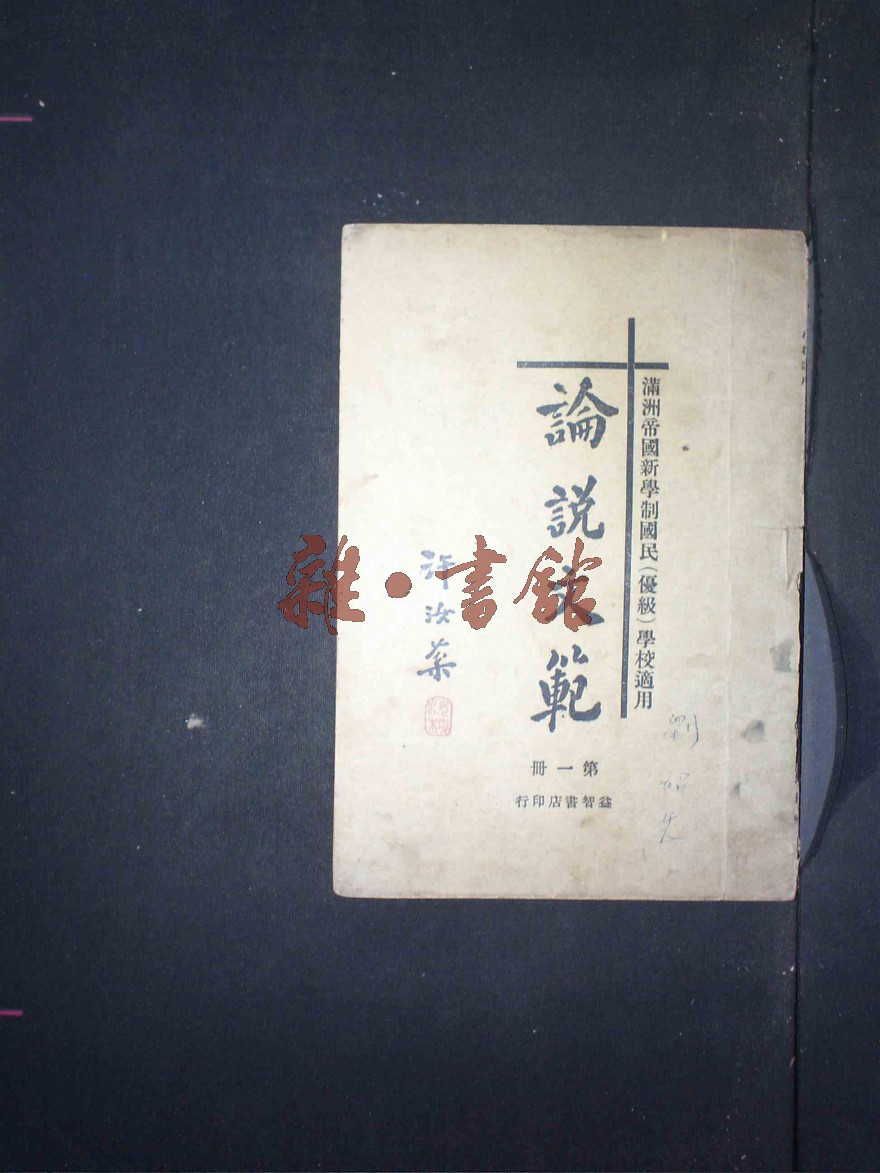 滿洲帝國新學制國民(優級)學校適用
論說示範
第一冊
益智書店印行
許汝棻
雜·書館